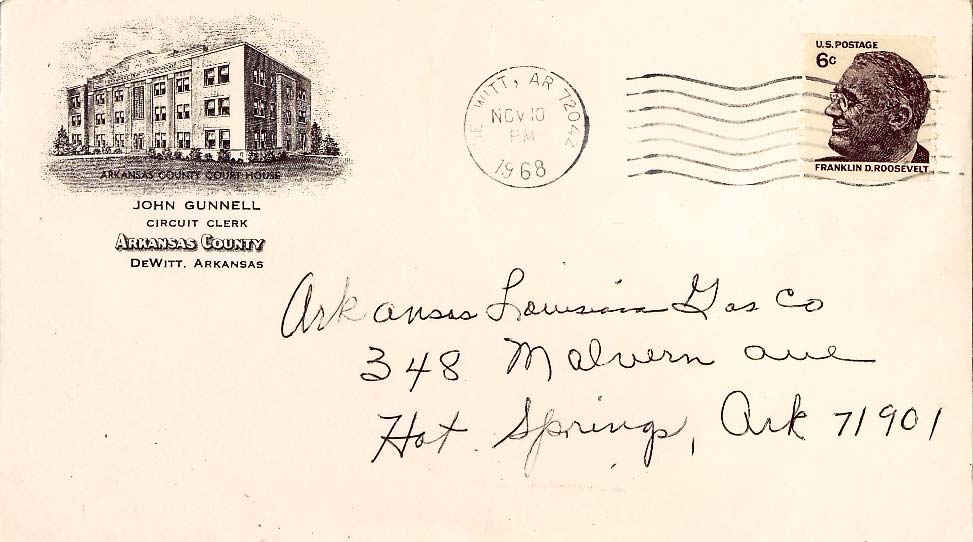 ARKANSAS COUNTY COURT HOUSE
JOHN GUNNELL
CIRCUIT CLERK
ARKANSAS COUNTY
DEWITT, ARKANSAS
DE WITT, AR 72042
NOV 10
PM
1968
U.S. POSTAGE
6c
FRANKLIN D. ROOSEVELT
Arkansas Louisiana Gas Co
348 Malvern ave
Hot Springs, Ark 71901